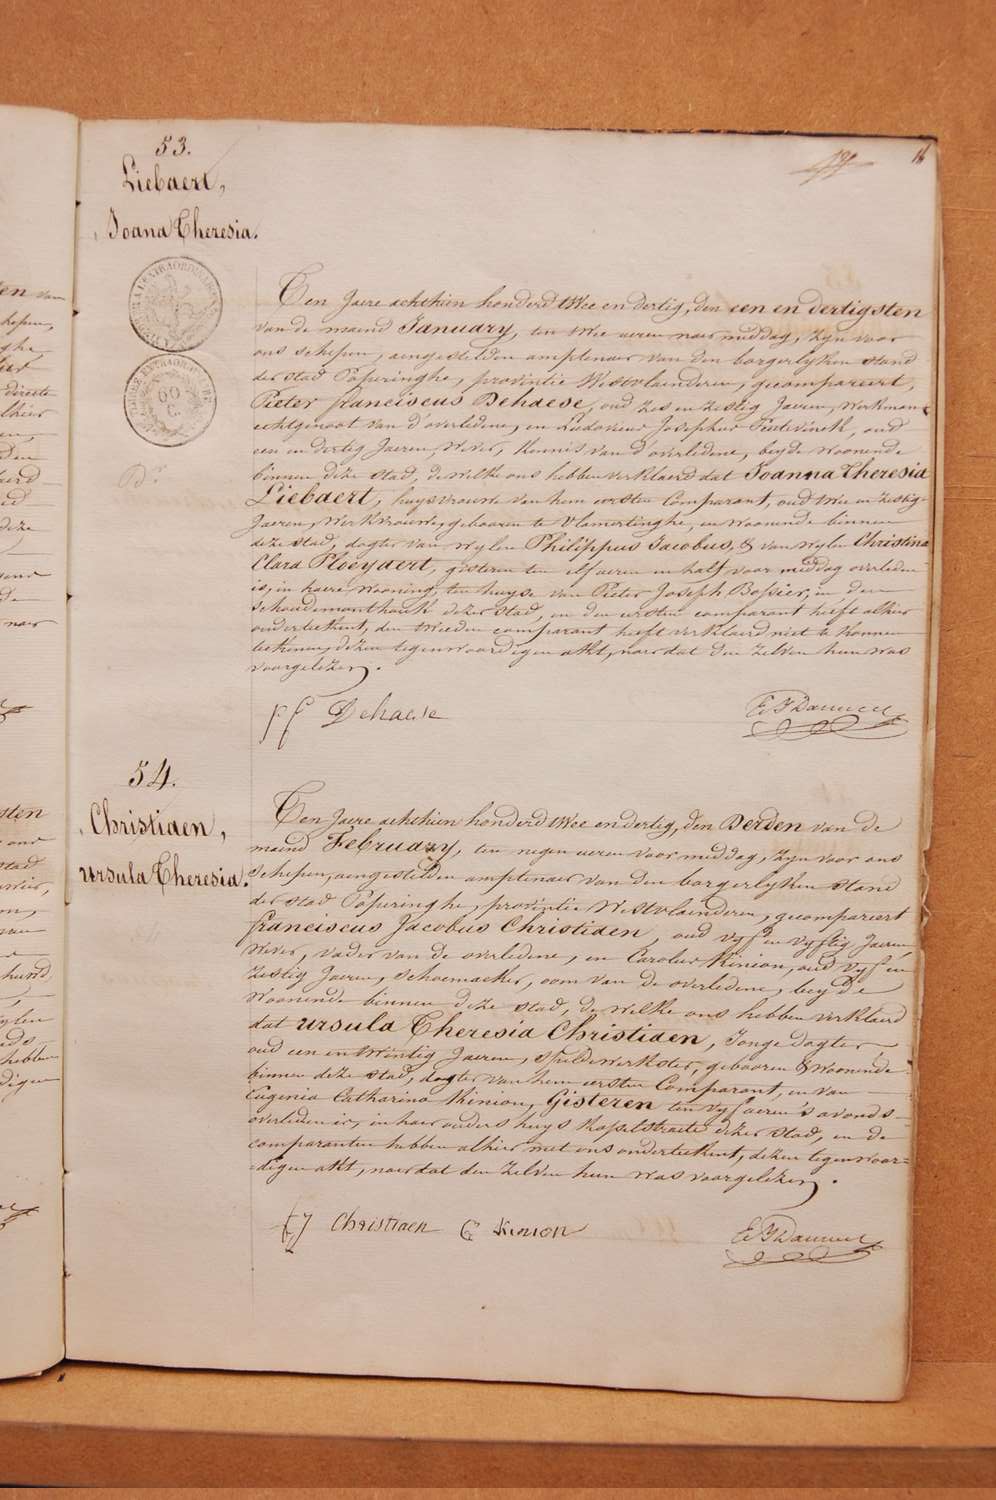 16
53.
Liebaert,
Joana Theresia.
Ten Jaere achthien honderd twee en dertig, den een en dertigsten
van de maend January, ten twee ueren naer middag, zyn voor
ons schepen, aengestelden amptenaer van den borgerlyken stand
der stad Poperinghe, provintie Westvlaenderen, gecompareert,
Pieter franciscus Dehaese, oud zes en zestig Jaeren, Werkman
echtgenoot van d'overledene, en Ludovicus Josephus
een en dertig Jaeren, Wever, kennis van d'overledene, beyde Woonende
binnen deze stad, de welke ons hebben verklaerd dat Joanna Theresia
Liebaert, huysvrouwe van hem eersten Comparant, oud twee en zestig
Jaeren, Werkvrouwe, gebooren te Vlamertinghe, en woonende binnen
deze stad, dogter van wylen Philippus Jacobus, & van wylen Christina
Clara Ploeydert, gisteren ten elf ueren en half voor middag overleden
is, in haere Wooning, ten huyse van Pieter Joseph Bossier, in den
schoudemonthoek dezer stad, en den eersten comparant heeft alhier
onderteekent, den tweeden comparant heeft verklaerd niet te konnen
teekenen, dezen tegenwoordigen akt, naer dat den zelven hun was
voorgelezen.
pf Dehaese
54.
Christiaen,
Ursula Theresia.
Ten Jaere achthien honderd twee en dertig, den Derden van de
maend February, ten negen ueren voor middag, zyn voor ons
schepen, aengestelden amptenaer van den borgerlyken stand
der stad Poperinghe, provintie Westvlaenderen, gecompareert
franciscus Jacobus Christiaen, oud vyf en vyftig Jaeren
Wever, vader van de overledene, en Carolus Kinion, oud vyf en
zestig Jaeren, schoemaeker, oom van de overledene, beyde
Woonende binnen deze stad, de welke ons hebben verklaerd
dat Ursula Theresia Christiaen, Jonge dogter
oud een en twintig Jaeren, speldewerkster, gebooren & Woonende
binnen deze stad, dogter van hem eersten Comparant, en van
Eugenia Catharina Kinion, Gisteren ten vyf ueren 's avonds
overleden is, in haer ouders huys Kasselstraete dezer stad, en de
comparanten hebben alhier met ons onderteekent, dezen tegenwoor=
=digen akt, naer dat den zelven hun was voorgelezen.
fJ Christiaen C Kinion